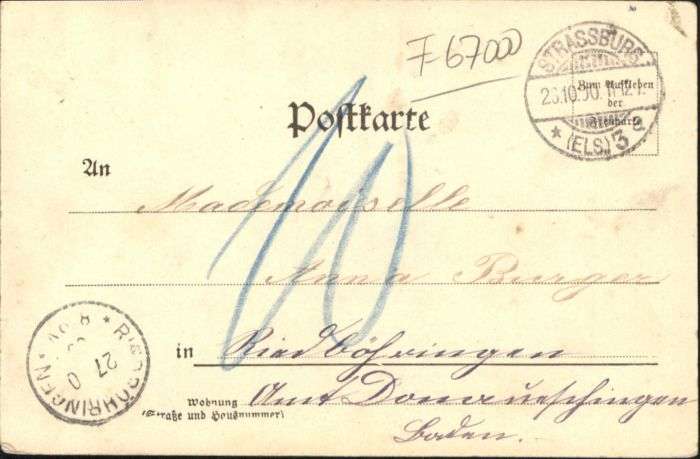 F 67000
STRASSBURG
Zum Aufkleben
26.10.00. 11-12 V.
der
(ELS) 3
Postkarte
An
Mademoiselle
10
Anna Burger
in Riedböhringen
RIEDBÖHRINGEN
27
Wohnung
(Straße und Hausnummer)
Amt Donaueschingen
Baden.